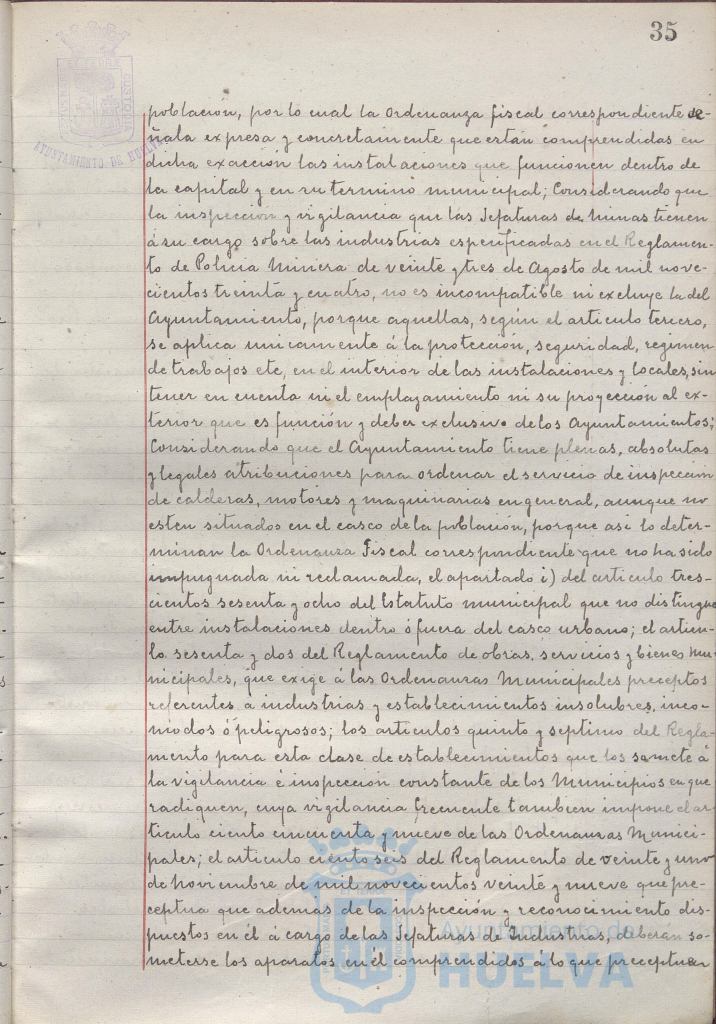 35
AYUNTAMIENTO DE HUELVA
población, por lo cual la Ordenanza fiscal correspondiente se-
ñala expresa y concretamente que están comprendidas en
dicha exacción las instalaciones que funcionen dentro de
la capital y en su termino municipal; Considerando que
la inspección y vigilancia que las Jefaturas de Minas tienen
á su cargo sobre las industrias especificadas en el Reglamen-
to de Policia Minera de veinte y tres de Agosto de mil nove-
cientos treinta y cuatro, no es incompatible ni excluye la del
Ayuntamiento, porque aquellas, según el articulo tercero,
se aplica unicamente á la protección, seguridad, regimen
de trabajos etc, en el interior de las instalaciones y locales, sin
tener en cuenta ni el emplazamiento ni su proyección al ex-
terior que es función y deber exclusivo de los Ayuntamientos;
Considerando que el Ayuntamiento tiene plenas, absolutas
y legales atribuciones para ordenar el servicio de inspección
de calderas, motores y maquinarias en general, aunque no
esten situados en el casco de la población, porque asi lo deter-
minan la Ordenanza Fiscal correspondiente que no ha sido
impugnada ni reclamada, el apartado i) del articulo tres-
cientos sesenta y ocho del Estatuto municipal que no distingue
entre instalaciones dentro ó fuera del casco urbano; el articu-
lo sesenta y dos del Reglamento de obras, servicios y bienes mu-
nicipales, que exige á las Ordenanzas Municipales preceptos
referentes á industrias y establecimientos insolubres, inco-
modos ó peligrosos; los articulos quinto y septimo del Regla-
mento para esta clase de establecimientos que los somete á
la vigilancia é inspección constante de los Municipios en que
radiquen, cuya vigilancia frecuente tambien impone el ar-
ticulo ciento cincuenta y nueve de las Ordenanzas Munici-
pales; el articulo ciento seis del Reglamento de veinte y uno
de Noviembre de mil novecientos veinte y nueve que pre-
ceptua que ademas de la inspección y reconocimiento dis-
puestos en él á cargo de las Jefaturas de Industrias, deberán so-
meterse los aparatos en él comprendidos á lo que preceptuen
Ayuntamiento de
HUELVA